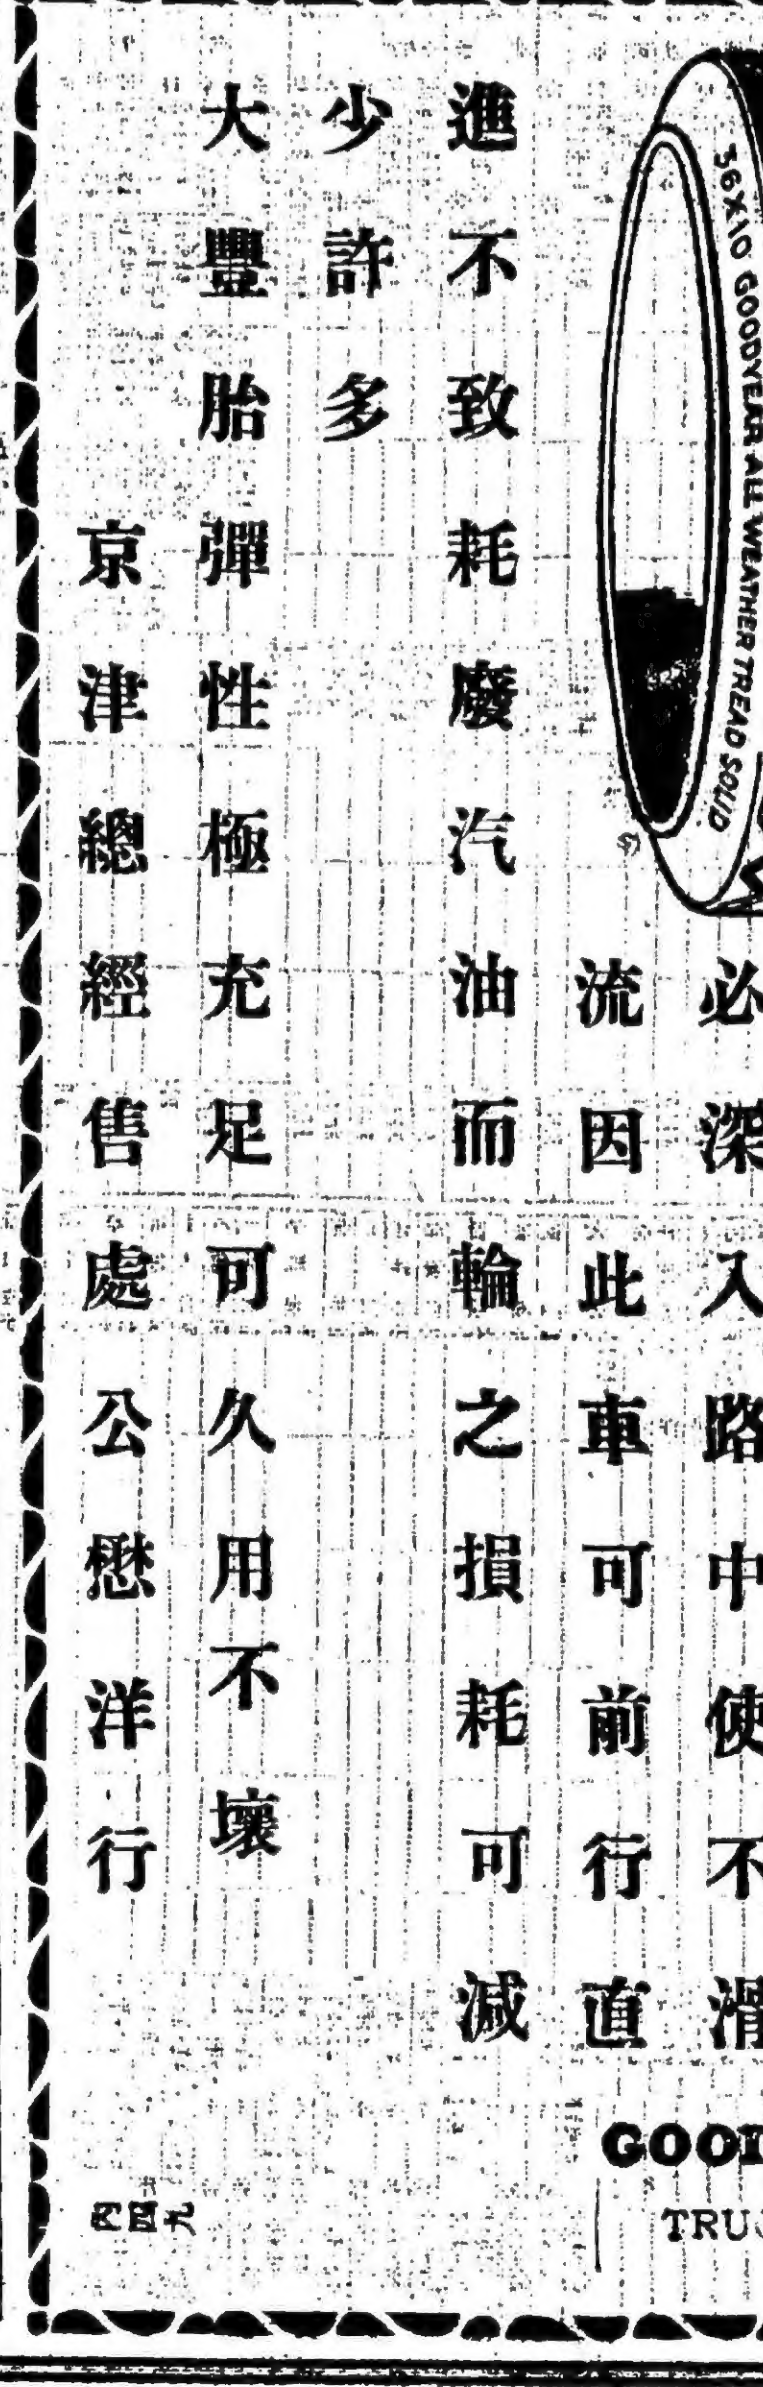 36X10 GOODYEAR ALL WEATHER TREAD SOLID
必深入路中使不滑
流因此車可前行直
進不致耗廢汽油而輪之損耗可減
少許多
大豐胎彈性極充足可久用不壞
京津總經售處公懋洋行
GOOD
TRUC
丙四九